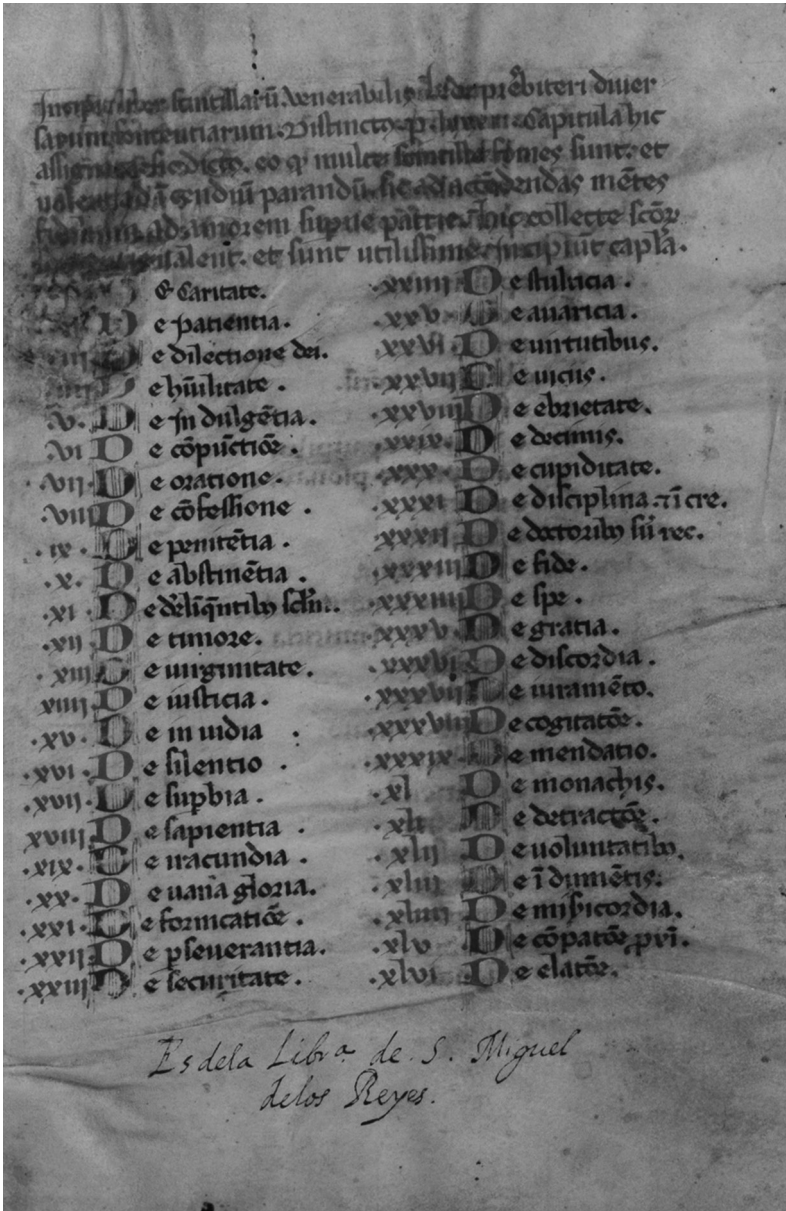 Incipit liber scintillarū venerabilis Bede pr̄ebiteri diuer
sarum sententiarum. Distincto. Capitula hic
eo q̄ multe scintille sunt. et
parandū. sic ad accēdendas mētes
ad amorem supne patrie. hic collecte scōr
ualent. et sunt utilissime. Incipiūt capl̄a.
De Caritate.
De patientia.
De dilectione dei.
De hūilitate.
.v. De Indulgētia.
.vi De cōpūctiōe.
.vii. De oratione.
.viii De cōfessione.
.ix. De penitētia.
.x. De abstinētia.
.xi. De
.xii De timore.
.xiii De uirginitate.
xiiii De iusticia.
.xv. De inuidia.
.xvi. De silentio.
.xvii. De supbia.
xviii De sapientia.
.xix. De iracundia.
.xx. De uana gloria.
.xxi. De fornicatiōe.
.xxii De pseuerantia.
.xxiii De securitate.
.xxiiii De stulticia.
.xxv. De auaricia.
.xxvi De uirtutibus.
.xxvii De uiciis.
.xxviii De ebrietate.
.xxix. De decimis.
.xxx. De cupiditate.
.xxxi De disciplina ⁊ īcre.
.xxxii De doctorib; siū rec.
.xxxiii De fide.
.xxxiiii De spe.
.xxxv De gratia.
.xxxvi De discordia.
.xxxvii De iuramēto.
.xxxviii De cogitatōe.
.xxxix De mendatio.
.xl De monachis.
.xli De detractōe.
.xlii De uoluntatib;.
.xliii De īdumētis.
.xliiii De misicordia.
.xlv De cōpatōe prī.
.xlvi De elatōe.
Es dela Libra de S. Miguel
delos Reyes.